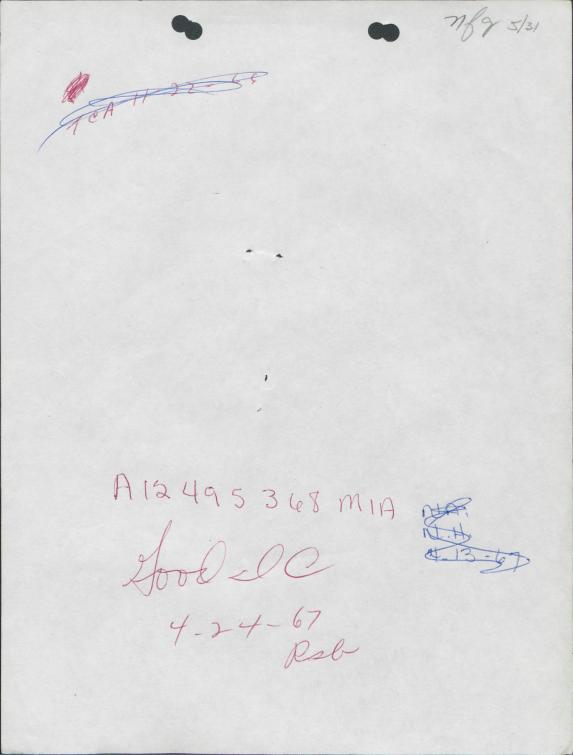 nfg 5/31
TCA 11-22-65
A12 495 368 MIA
N/A.
N.H.
4-13-67
Good IC
4-24-67
Rsb